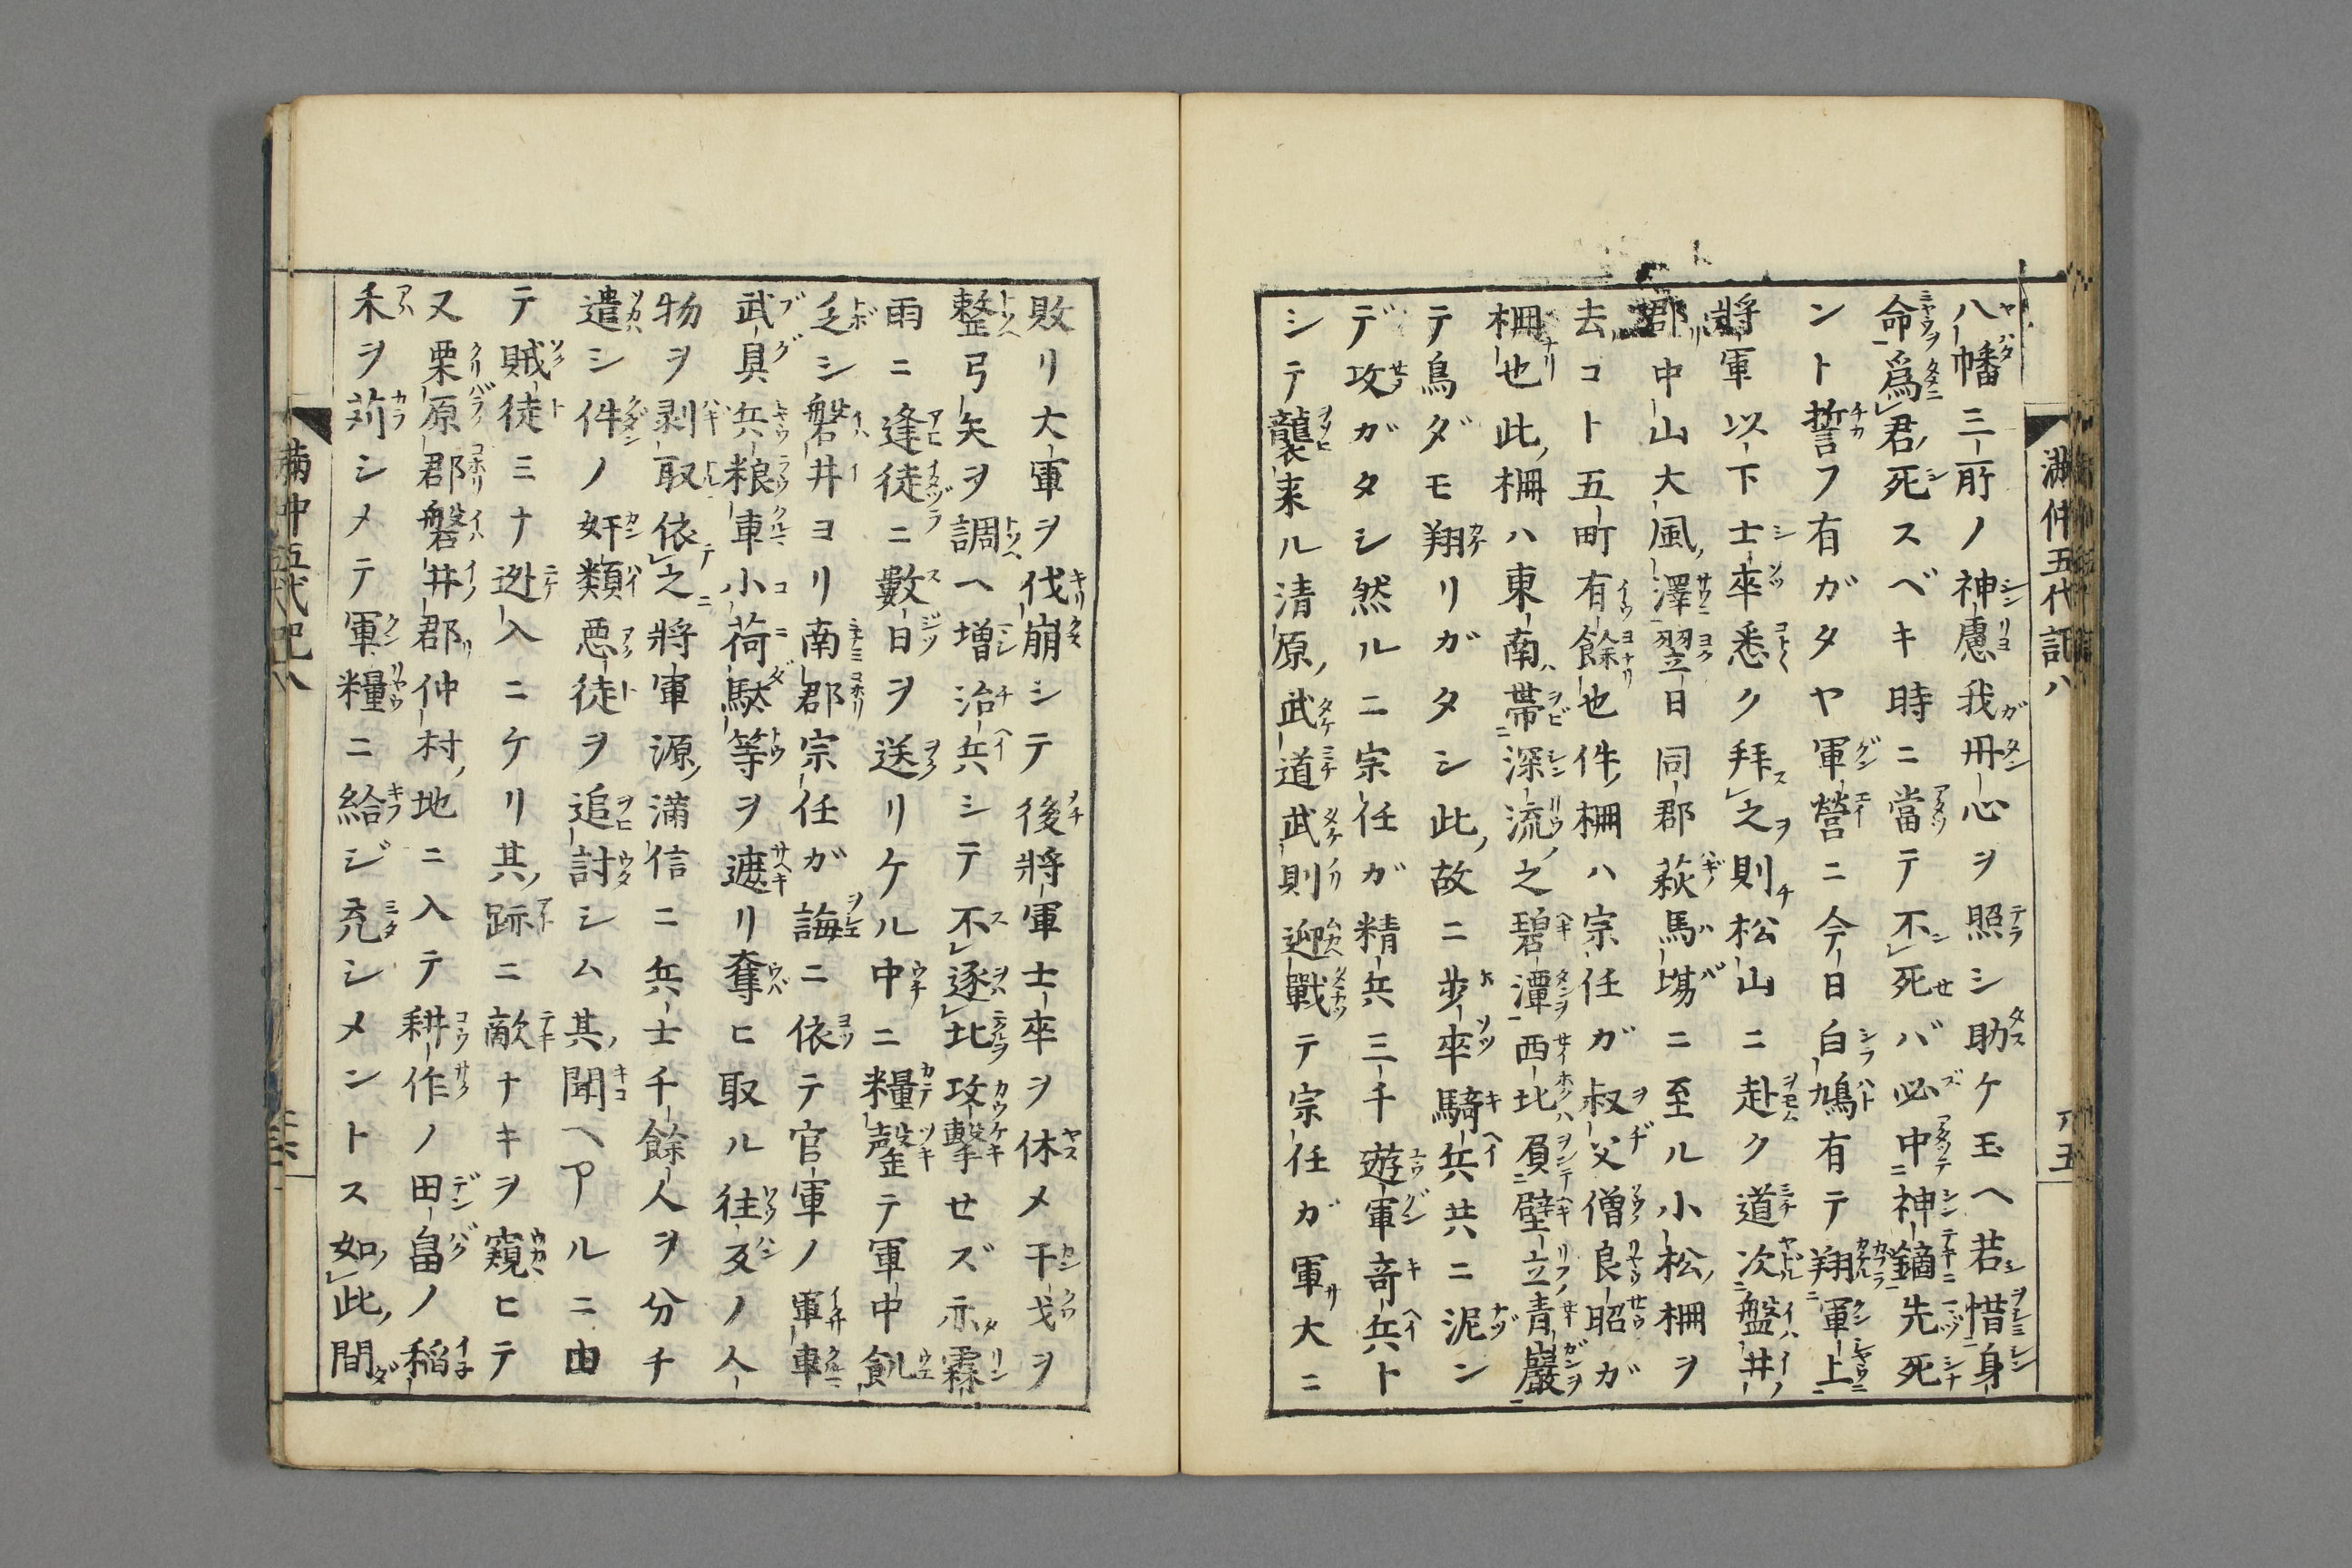 満仲五代記八
八幡三所ノ神慮我冊心ヲ照シ助ケ玉ヘ若惜身
命爲君死スベキ時ニ當テ不死バ必中神鏑先死
ント誓フ有ガタヤ軍營ニ今日白鳩有テ翔軍上
將軍以下士卒悉ク拜之則松山ニ赴ク道次盤井
郡中山大風澤翌日同郡萩馬場ニ至ル小松柵ヲ
去コト五町有餘也件柵ハ宗任ガ叔父僧良昭ガ
柵也此柵ハ東南帯深流之碧潭西北負壁立青巖
テ鳥ダモ翔リガタシ此故ニ歩卒騎兵共ニ泥ン
デ攻ガタシ然ルニ宗任ガ精兵三千遊軍竒兵ト
シテ襲来ル清原武道武則迎戰テ宗任ガ軍大ニ
敗リ大軍ヲ伐崩シテ後將軍士卒ヲ休メ干戈ヲ
整弓矢ヲ調ヘ増治兵シテ不逐北攻擊セズ亦霖
雨ニ逢徒ニ數日ヲ送リケル中ニ糧聲テ軍中飢
乏シ磐井ヨリ南郡宗任ガ誨ニ依テ官軍ノ軍車
武具兵粮車小荷駄等ヲ遮リ奪ヒ取ル往亥ノ人
物ヲ剥取依之將軍源滿信ニ兵士千餘人ヲ分チ
遣シ件ノ奸類悪徒ヲ追討シム其聞ヘアルニ由
テ賊徒ミナ迯入ニケリ其跡ニ敵ナキヲ窺ヒテ
又栗原郡磐井郡仲村地ニ入テ耕作ノ田畠ノ稲
禾ヲ苅シメテ軍糧ニ給ジ充シメントス如此間
満仲五代記八